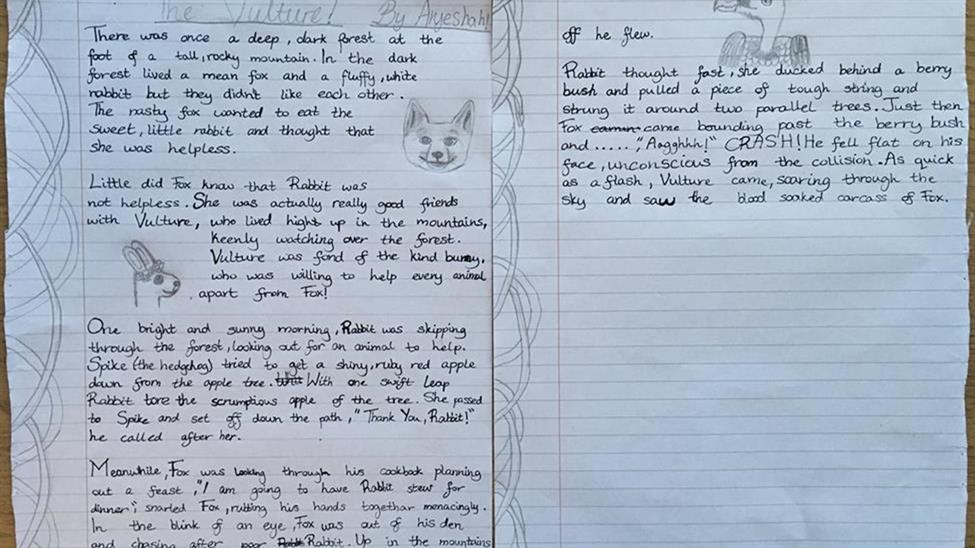 The Vulture! By Aiyeshah!
There was once a deep, dark forest at the
foot of a tall, rocky mountain. In the dark
forest lived a mean fox and a fluffy, white
rabbit but they didn't like each other.
The nasty fox wanted to eat the
sweet, little rabbit and thought that
she was helpless.
Little did Fox know that Rabbit was
not helpless. She was actually really good friends
with Vulture, who lived hight up in the mountains,
keenly watching over the forest.
Vulture was fond of the kind bunny,
who was willing to help every animal
apart from Fox!
One bright and sunny morning, Rabbit was skipping
through the forest, looking out for an animal to help.
Spike (the hedgehog) tried to get a shiny, ruby red apple
down from the apple tree. With one swift leap
Rabbit tore the scrumptious apple of the tree. She passed
to Spike and set off down the path, "Thank You, Rabbit!"
he called after her.
Meanwhile, Fox was looking through his cookbook planning
out a feast, "I am going to have Rabbit stew for
dinner", snarled Fox, rubbing his hands together menacingly.
In the blink of an eye, Fox was out of his den
and chasing after poor Rabbit. Up in the mountains
off he flew.
Rabbit thought fast, she ducked behind a berry
bush and pulled a piece of tough string and
strung it around two parallel trees. Just then
Fox came bounding past the berry bush
and ....., "Aagghhh!" CRASH! He fell flat on his
face, unconscious from the collision. As quick
as a flash, Vulture came, soaring through the
sky and saw the blood soaked carcass of Fox.